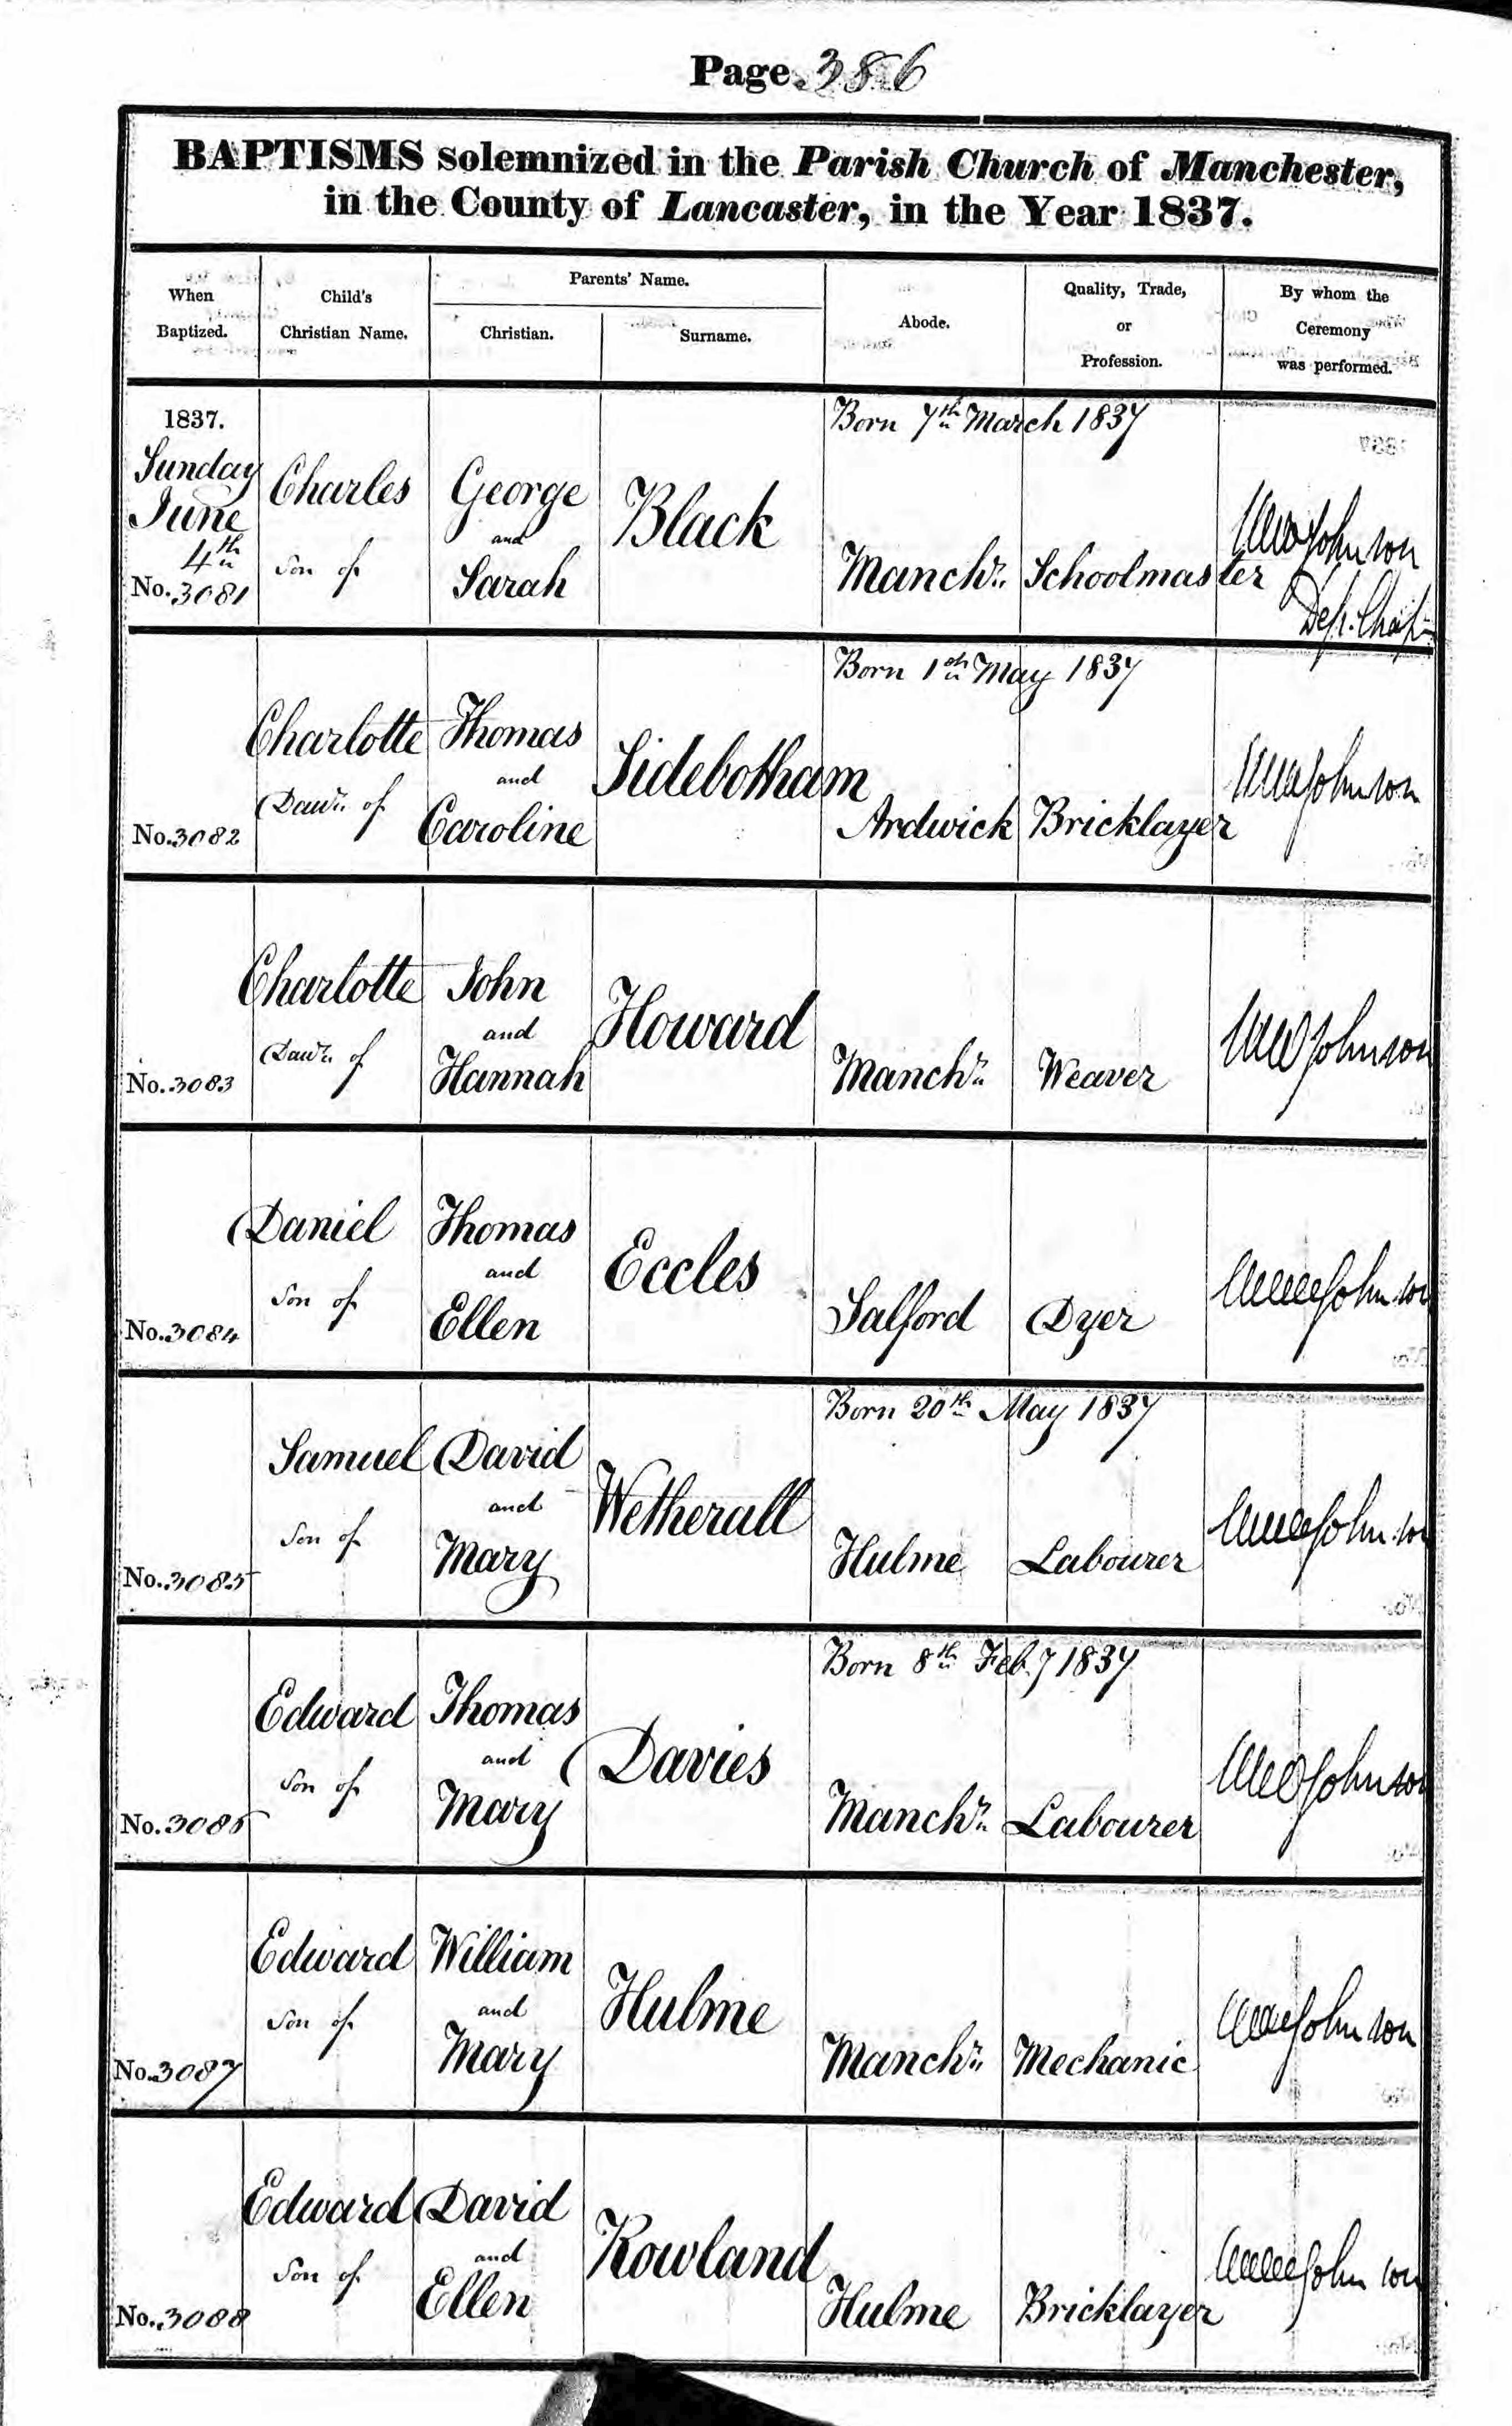 Page 386
BAPTISMS solemnized in the Parish Church of Manchester,
in the County of Lancaster, in the Year 1837.
When
Baptized.
Child's
Christian Name.
Parents' Name.
Christian.
Surname.
Abode.
Quality, Trade,
or
Profession.
By whom the
Ceremony
was performed.
1837.
Sunday
June
4th
No. 3081
Charles
Son of
George
and
Sarah
Black
Born 7th March 1837
Manchr.
Schoolmaster
Wm Johnson
Dep. Chap
No. 3082
Charlotte
Daur. of
Thomas
and
Caroline
Sidebotham
Born 1st May 1837
Ardwick
Bricklayer
Wm Johnson
No. 3083
Charlotte
Daur. of
John
and
Hannah
Howard
Manchr.
Weaver
Wm Johnson
No. 3084
Daniel
Son of
Thomas
and
Ellen
Eccles
Salford
Dyer
Wm Johnson
No. 3085
Samuel
Son of
David
and
Mary
Wetherall
Born 20th May 1837
Hulme
Labourer
Wm Johnson
No. 3086
Edward
Son of
Thomas
and
Mary
Davies
Born 8th Feby 1837
Manchr.
Labourer
Wm Johnson
No. 3087
Edward
Son of
William
and
Mary
Hulme
Manchr.
Mechanic
Wm Johnson
No. 3088
Edward
Son of
David
and
Ellen
Rowland
Hulme
Bricklayer
Wm Johnson